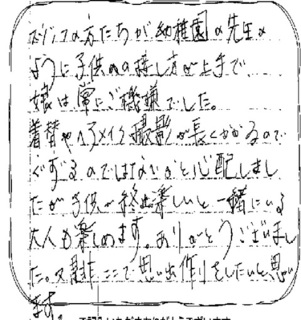 スタッフの方たちが幼稚園の先生の
ように子供への接し方が上手で、
娘は常にご機嫌でした。
着替やヘアメイク撮影が長くかかるので
ぐずるのではないかと心配しまし
たが子供が終始楽しいと一緒にいる
大人も楽しめます。ありがとうございまし
た。又是非ここで思い出作りをしたいと思い
ます。